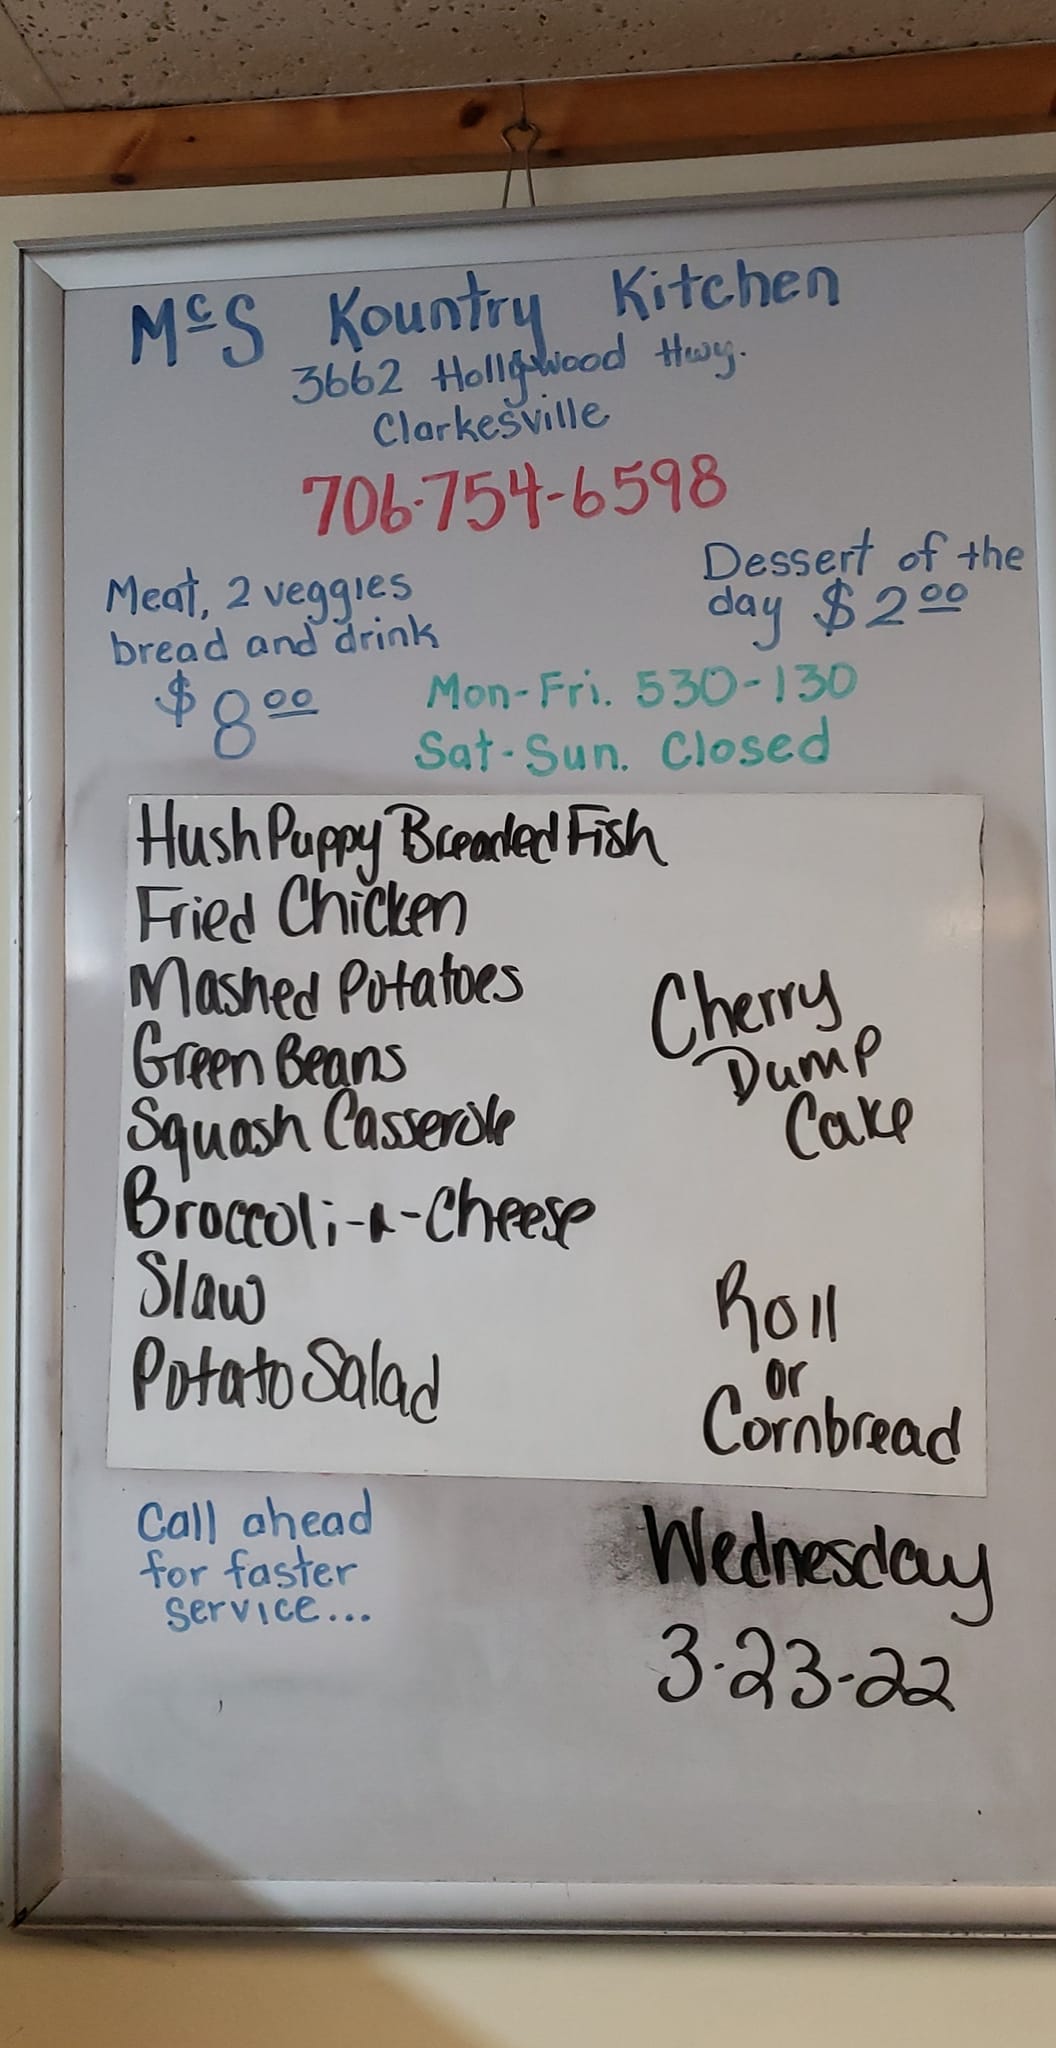 McS Kountry Kitchen
3662 Hollywood Hwy.
Clarkesville
706-754-6598
Meat, 2 veggies
bread and drink
$8.00
Dessert of the
day $2.00
Mon-Fri. 530-130
Sat-Sun. Closed
Hush Puppy Breaded Fish
Fried Chicken
Mashed Potatoes
Green Beans
Squash Casserole
Broccoli-n-Cheese
Slaw
Potato Salad
Cherry
Dump
Cake
Roll
or
Cornbread
Call ahead
for faster
service...
Wednesday
3-23-22